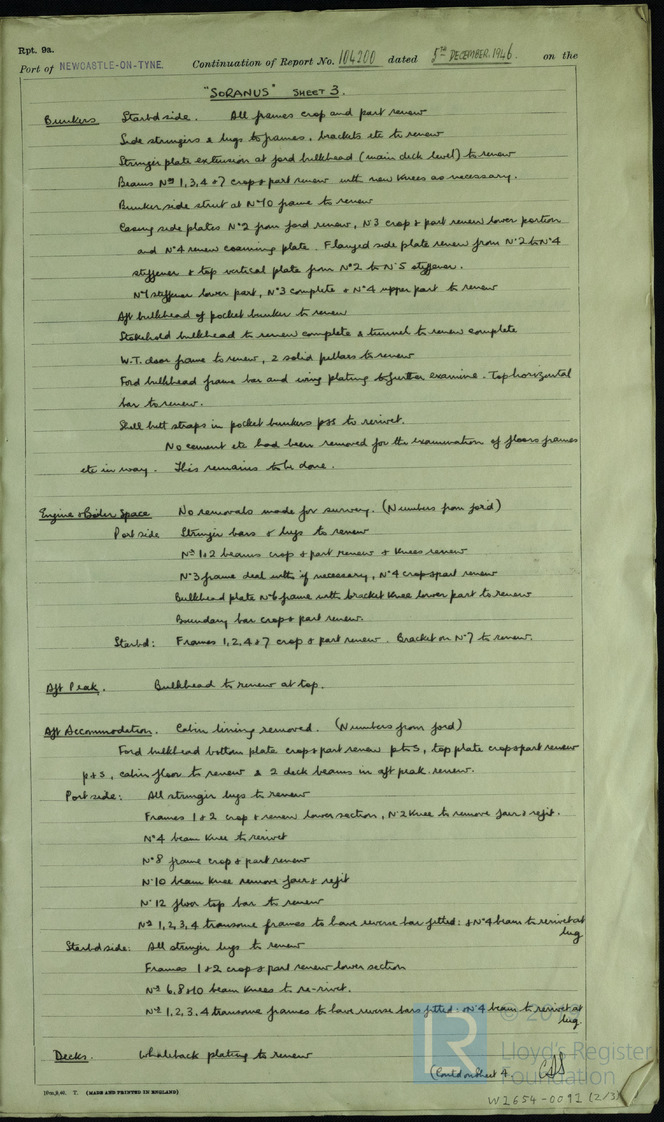 Rpt. 9a.
Port of NEWCASTLE-ON-TYNE. Continuation of Report No. 104200 dated 5TH DECEMBER, 1946. on the
"SORANUS" SHEET 3.
Bunkers Starbd side. All frames crop and part renew
Side stringers & lugs to frames, brackets etc to renew
Stringer plate extension at ford bulkhead (main deck level) to renew
Beams Nos 1, 3, 4 & 7 crop & part renew with new knees as necessary.
Bunker side strut at No 10 frame to renew
Casing side plates No 2 from ford renew, No 3 crop & part renew lower portion
and No 4 renew coaming plate. Flanged side plate renew from No 2 to No 4
stiffener & top vertical plate from No 2 to No 5 stiffener.
No 1 stiffener lower part, No 3 complete & No 4 upper part to renew
Aft bulkhead of pocket bunker to renew
Stokehold bulkhead to renew complete & tunnel to renew complete
W.T. door frame to renew, 2 solid pillars to renew
Ford bulkhead frame bar and wing plating to further examine. Top horizontal
bar to renew.
Shell butt straps in pocket bunkers p&s to rerivet.
No cement etc had been removed for the examination of floors frames
etc in way. This remains to be done.
Engine & Boiler Space No removals made for survey. (Numbers from for'd)
Port side Stringer bars & lugs to renew
Nos 1 & 2 beams crop & part renew & knees renew
No 3 frame deal with if necessary, No 4 crop & part renew
Bulkhead plate No 6 frame with bracket knee lower part to renew
Boundary bar crop & part renew.
Starbd: Frames 1, 2, 4 & 7 crop & part renew. Bracket on No 7 to renew.
Aft Peak. Bulkhead to renew at top.
Aft Accommodation. Cabin lining removed. (Numbers from ford)
Ford bulkhead bottom plate crop & part renew p & s, top plate crop & part renew
p & s, cabin floor to renew & 2 deck beams in aft peak renew.
Port side: All stringer lugs to renew
Frames 1 & 2 crop & renew lower section, No 2 knee to remove fair & refit.
No 4 beam knee to rerivet
No 8 frame crop & part renew
No 10 beam knee remove fair & refit
No 12 floor top bar to renew
Nos 1, 2, 3, 4 transome frames to have reverse bar fitted: & No 4 beam to rerivet at
lug
Starbd side: All stringer lugs to renew
Frames 1 & 2 crop & part renew lower section
Nos 6, 8 & 10 beam knees to re-rivet.
Nos 1, 2, 3, 4 transome frames to have reverse bars fitted: & No 4 beam to rerivet at
lug.
Decks. Whaleback plating to renew
(Contd on Sheet 4.
(MADE AND PRINTED IN ENGLAND)
Lloyd's Register
Foundation
W2654-0092 (2/3)